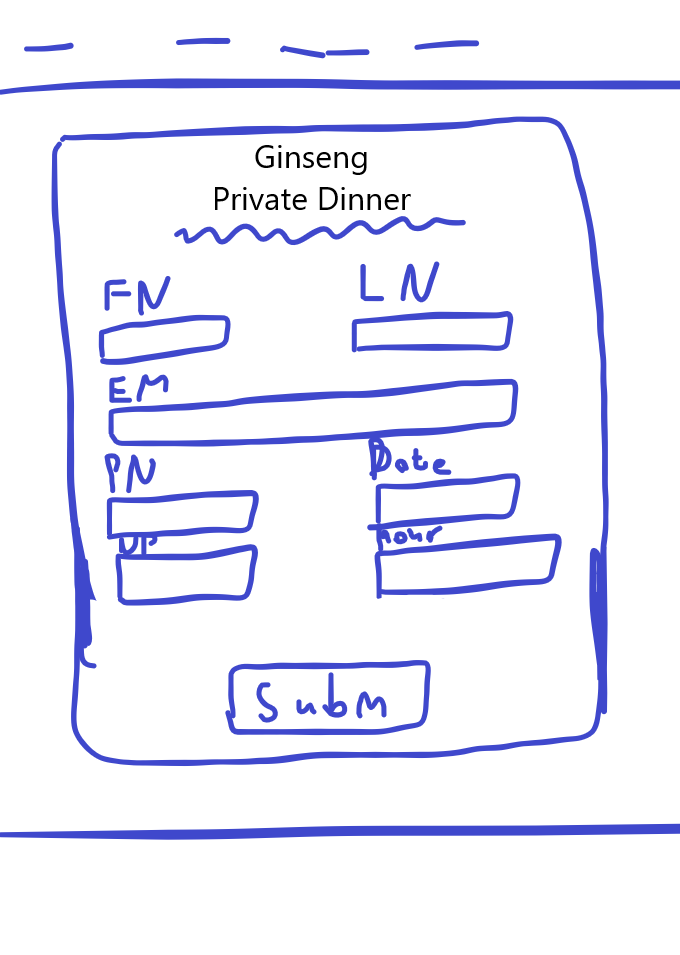 Ginseng
Private Dinner
FN LN
EM
PN Date
hour
Subm